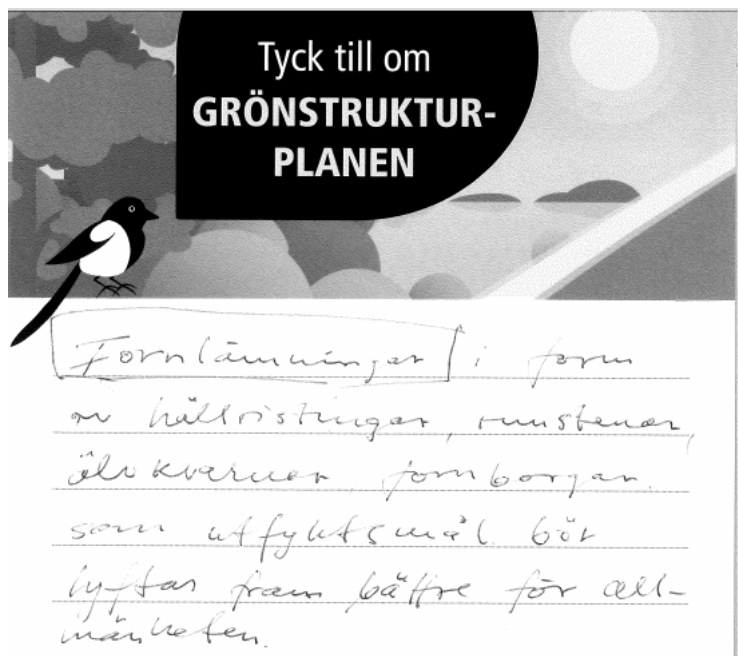 Tyck till om
GRÖNSTRUKTUR-
PLANEN
Fornlämningar i form
av hällristningar, runstenar,
älvkvarnar, fornborgar.
som utfyktsmål bör
lyftas fram bättre för all-
mänheten.